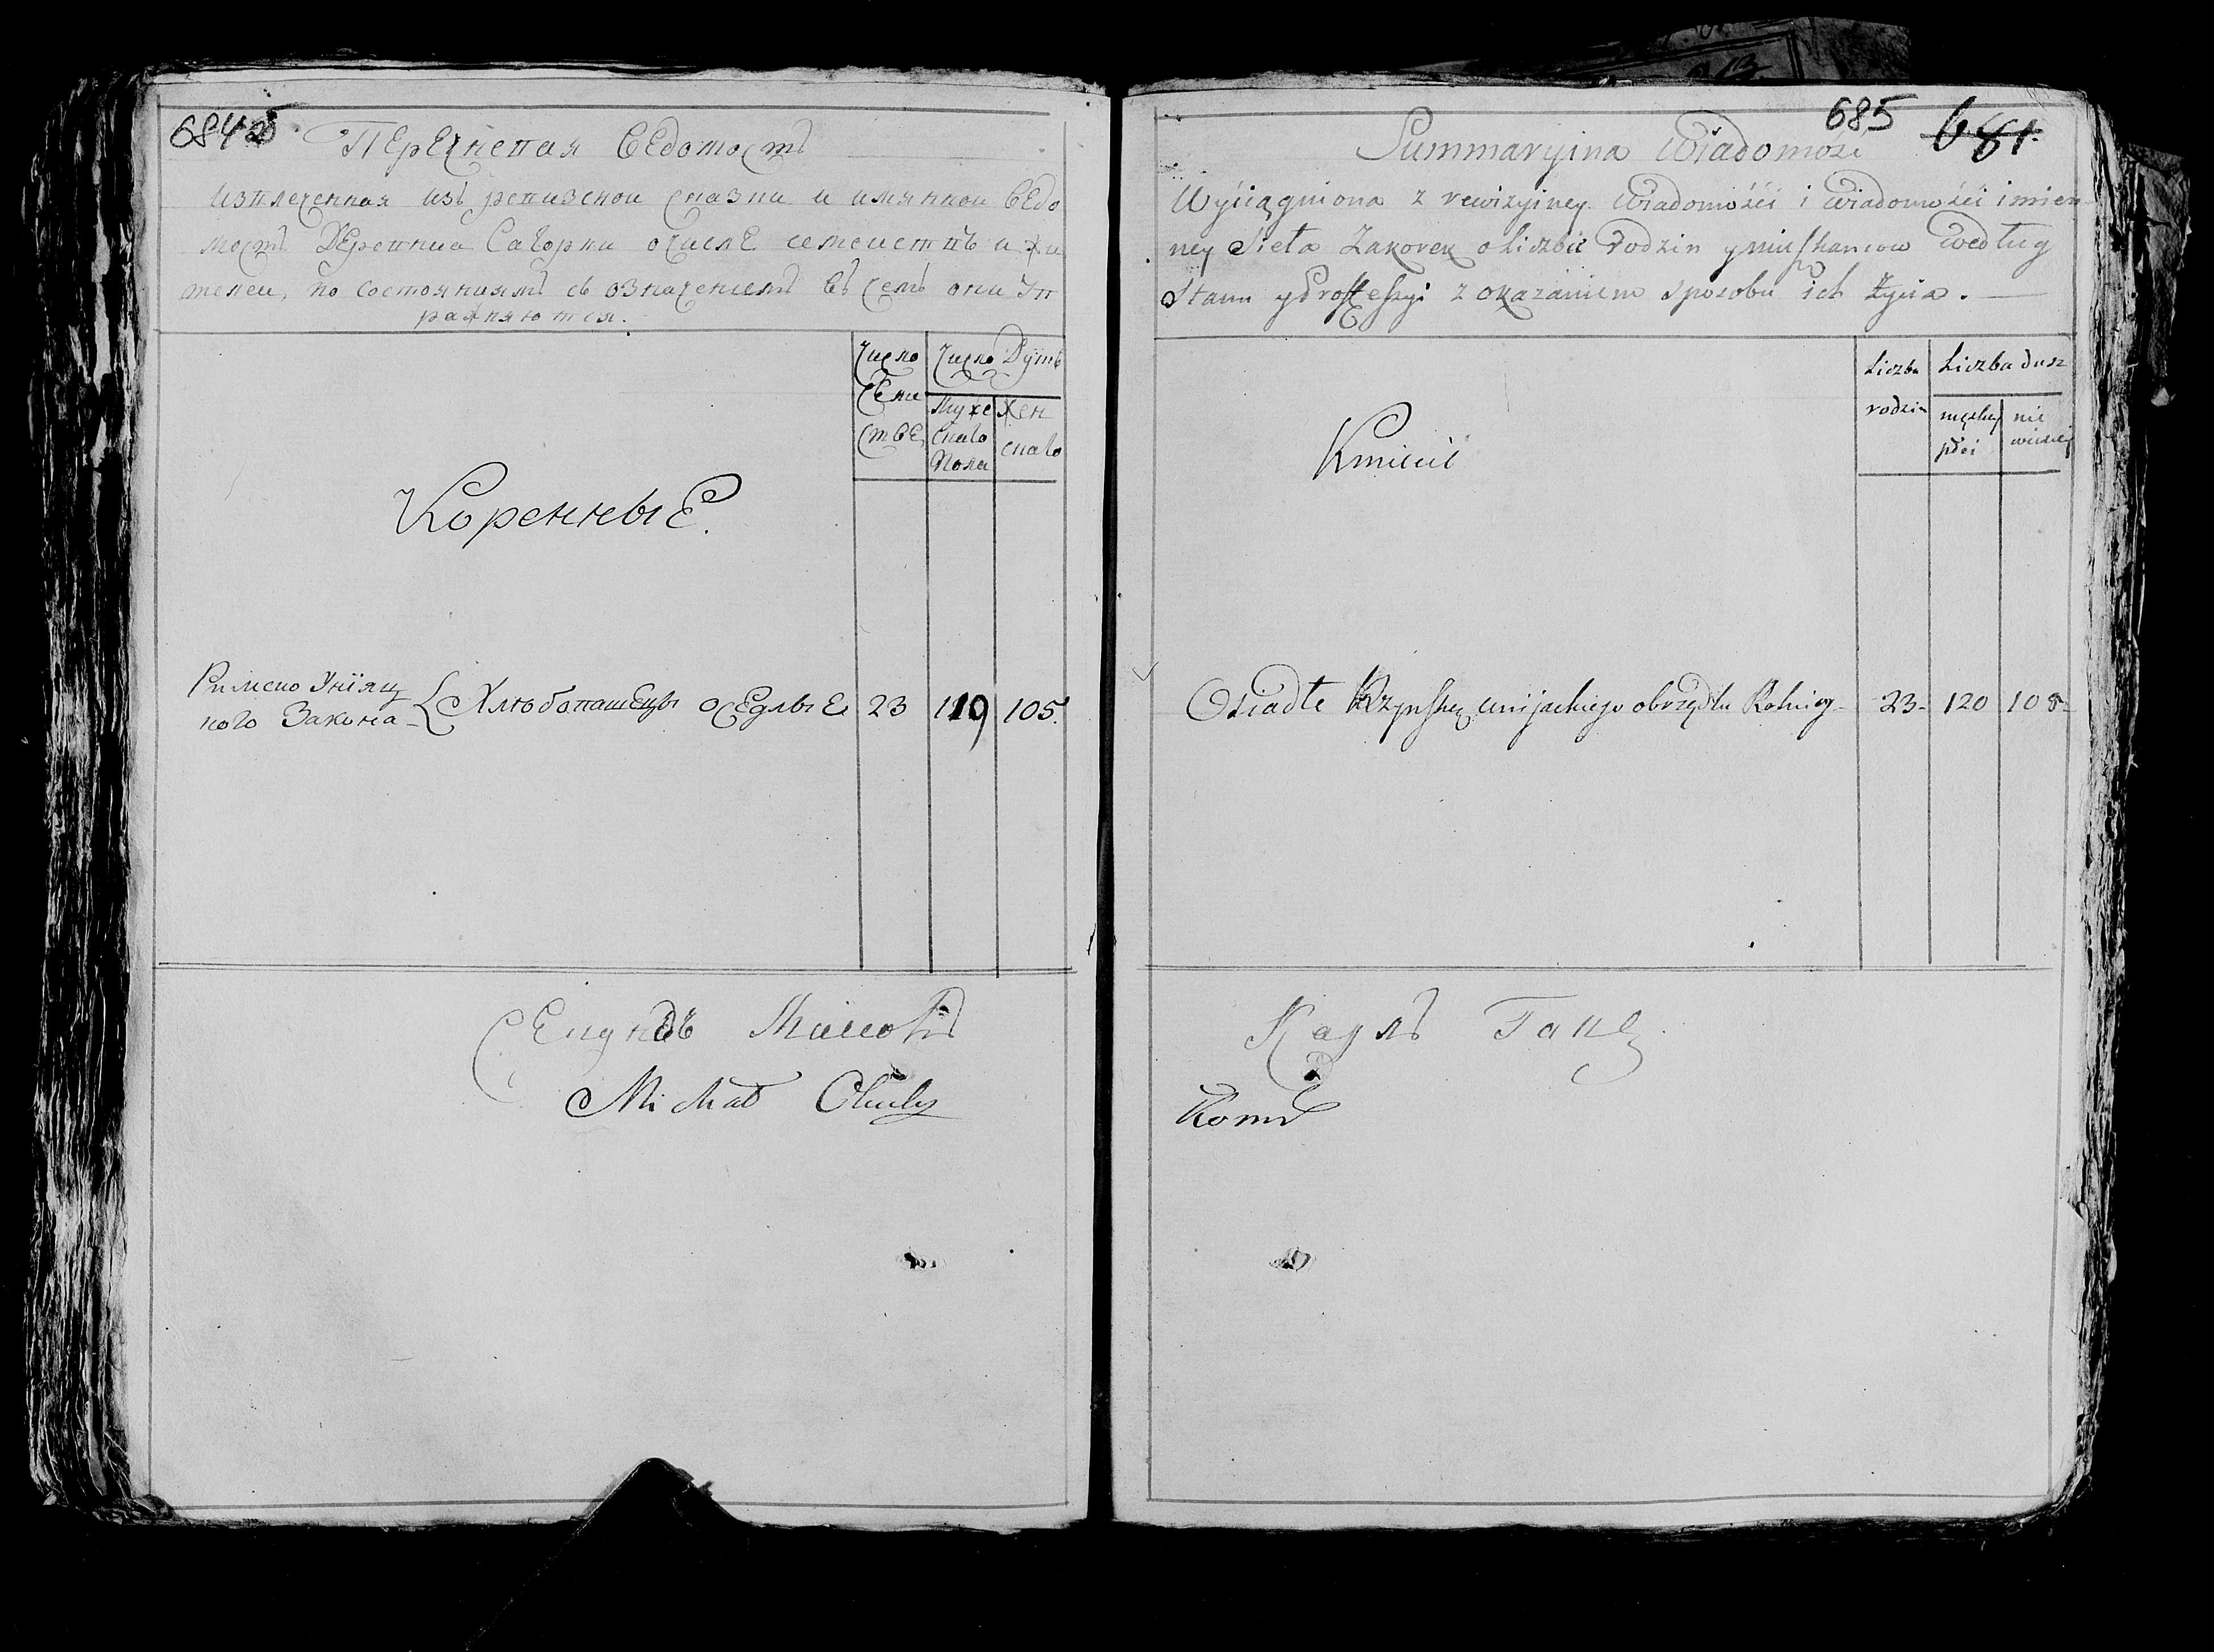 684 об
Перечневая Ведомость
извлеченная изъ ревизской сказки и имянной Ведо
мости Деревни Сагорки очисле семействъ и жи
телей, по состояниямъ съ означениемъ въ чемъ они Уп
ражняются.
Число Семи ствЕ
Число Душъ
Мужескаго Пола
Женскаго
КоренныЕ.
Римско Уніяц
кого Закона
Хлюбопашецы осЕдлыЕ 23 119 105.
Michał
685 681
Summaryina Wiadomość
Wyciągniona z rewizyiney Wiadomości i Wiadomości imien
ney Sieła Zakorek o liczbie Rodzin y mieszkancow według
Stanu y Professyi z okazaniem sposobu ich życia.
Liczba rodzin
Liczba dusz
męskiej płci
nie wieściej
Kmiecie
Osiadłe Rzymsko unijackiego obrządku Rolnicy 23 - 120 105
Карлъ